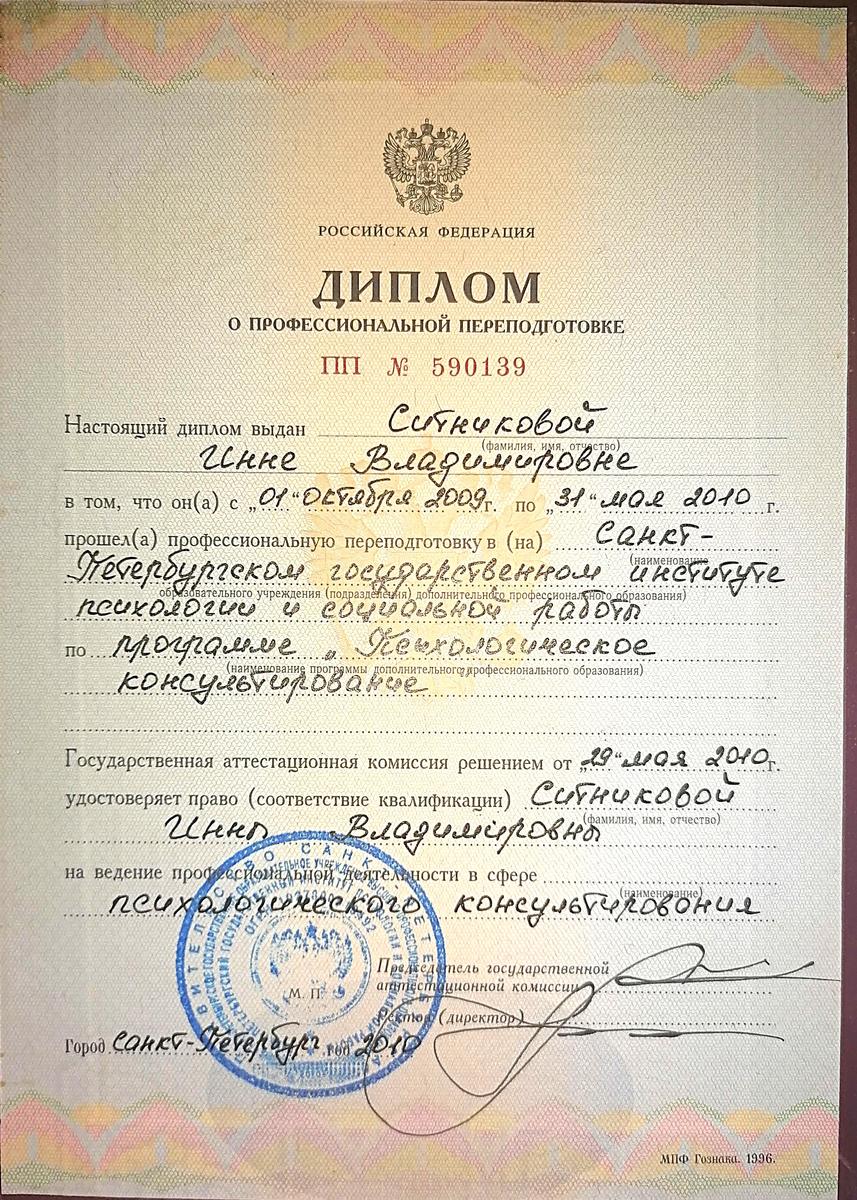 РОССИЙСКАЯ ФЕДЕРАЦИЯ
ДИПЛОМ
О ПРОФЕССИОНАЛЬНОЙ ПЕРЕПОДГОТОВКЕ
ПП № 590139
Настоящий диплом выдан Ситниковой
(фамилия, имя, отчество)
Инне Владимировне
в том, что он(а) с „01“ октября 2009г. по „31“ мая 2010 г.
прошел(а) профессиональную переподготовку в (на) Санкт-
(наименование
Петербургском государственном институте
образовательного учреждения (подразделения) дополнительного профессионального образования)
психологии и социальной работы
по программе „Психологическое
(наименование программы дополнительного профессионального образования)
консультирование
Государственная аттестационная комиссия решением от „29“ мая 2010г.
удостоверяет право (соответствие квалификации) Ситниковой
(фамилия, имя, отчество)
Инны Владимировны
на ведение профессиональной деятельности в сфере
(наименование)
психологического консультирования
Председатель государственной
аттестационной комиссии
М. П.
Ректор (директор)
Город Санкт-Петербург год 2010
МПФ Гознака. 1996.